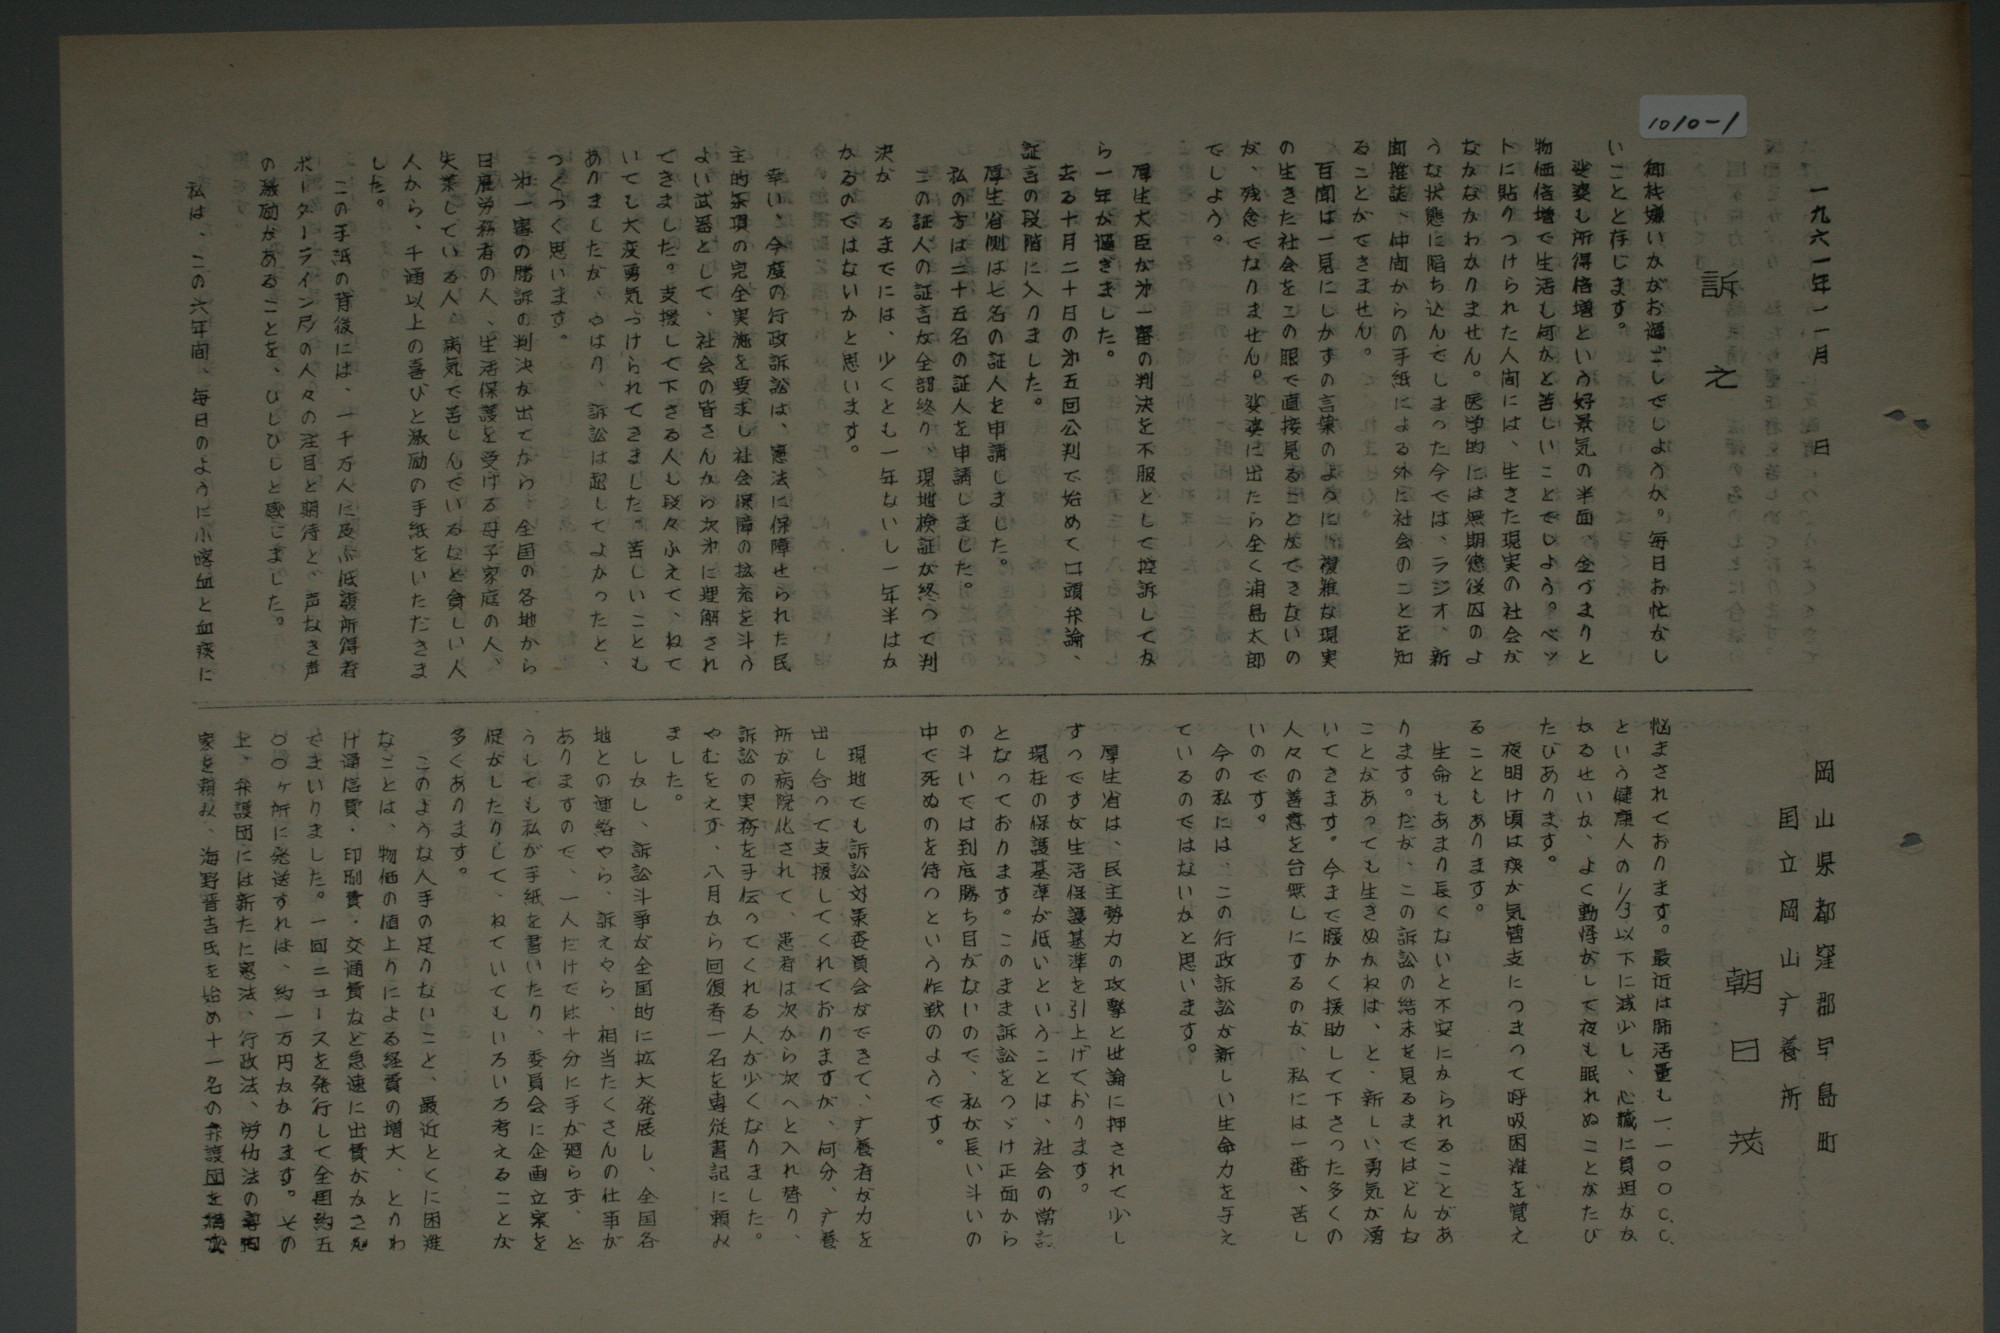 1010-1
一九六一年一一月　　日
訴　え
岡山県都窪郡早島町
国立岡山疒養所
朝日　茂
御机嫌いかがお過ごしでしようか。毎日お忙なし
いことと存じます。
娑婆も所得倍増という好景気の半面、金づまりと
物価倍増で生活も何かと苦しいことでしよう。ベッ
トに貼りつけられた人間には、生きた現実の社会が
なかなかわかりません。医学的には無期懲役囚のよ
うな状態に陥ち込んでしまった今では、ラジオ、新
聞雑誌、仲間からの手紙による外に社会のことを知
ることができません。
百聞は一見にしかずの言葉のように、複雑な現実
の生きた社会をこの眼で直接見ることができないの
が、残念でなりません。娑婆に出たら全く浦島太郎
でしよう。
厚生大臣が才一審の判決を不服として控訴してか
ら一年が過ぎました。
去る十月二十日の才五回公判で始めて口頭弁論、
証言の段階に入りました。
厚生省側は七名の証人を申請しました。
私の方は二十五名の証人を申請しました。
この証人の証言が全部終り、現地検証が終つて判
決が　るまでには、少くとも一年ないし一年半はか
かるのではないかと思います。
幸い、今度の行政訴訟は、憲法に保障せられた民
主的条項の完全実施を要求し社会保障の拡充を斗う
よい武器として、社会の皆さんから次才に理解され
てきました。支援して下さる人も段々ふえて、ねて
いても大変勇気づけられてきました。苦しいことも
ありましたが、やはり、訴訟は起してよかったと、
つくづく思います。
才一審の勝訴の判決が出てから、全国の各地から
日雇労務者の人、生活保護を受ける母子家庭の人、
失業している人、病気で苦しんでいるなど貪しい人
人から、千通以上の喜びと激励の手紙をいただきま
した。
この手紙の背後には、一千万人に及ぶ低額所得者
ボーダーライン層の人々の注目と期待と、声なき声
の激励があることを、ひしひしと感じました。
私は、この六年間、毎日のように小喀血と血痰に
悩まされております。最近は肺活量も一、一〇〇C.C.
という健康人の1/3以下に減少し、心臓に負担がか
かるせいか、よく動悸がして夜も眠れぬことがたび
たびあります。
夜明け頃は痰が気管支につまって呼吸困難を覚え
ることもあります。
生命もあまり長くないと不安にかられることがあ
ります。だが、この訴訟の結末を見るまではどんな
ことがあっても生きぬかねば、と、新しい勇気が湧
いてきます。今まで暖かく援助して下さった多くの
人々の善意を台無しにするのが、私には一番、苦し
いのです。
今の私には、この行政訴訟が新しい生命力を与え
ているのではないかと思います。
厚生省は、民主勢力の攻撃と世論に押されて少し
ずつですが生活保護基準を引上げております。
現在の保護基準が低いということは、社会の常識
となっております。このまま訴訟をつづけ正面から
の斗いでは到底勝ち目がないので、私が長い斗いの
中で死ぬのを待つという作戦のようです。
現地でも訴訟対策委員会ができて、疒養者が力を
出し合って支援してくれておりますが、何分、疒養
所が病院化されて、患者は次から次へと入れ替り、
訴訟の実務を手伝ってくれる人が少くなりました。
やむをえず、八月から回復者一名を専従書記に頼み
ました。
しかし、訴訟斗争が全国的に拡大発展し、全国各
地との連絡やら、訴えやら、相当たくさんの仕事が
ありますので、一人だけでは十分に手が廻らず、ど
うしても私が手紙を書いたり、委員会に企画立案を
促がしたりして、ねていてもいろいろ考えることが
多くあります。
このような人手の足りないこと、最近とくに困難
なことは、物価の値上りによる経費の増大、とりわ
け通信費・印刷費・交通費など急速に出費がかさん
でまいりました。一回ニュースを発行して全国約五
〇〇ヶ所に発送すれば、約一万円かかります。その
上、弁護団には新たに憲法、行政法、労仂法の専門
家を頼み、海野晋吉氏を始め十一名の弁護団を